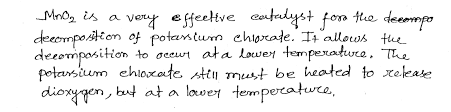 MnO2 is a very effective catalyst for the decompo
decomposition of potassium chlorate. It allows the
decomposition to occur at a lower temperature. The
potassium chlorate still must be heated to release
dioxygen, but at a lower temperature.